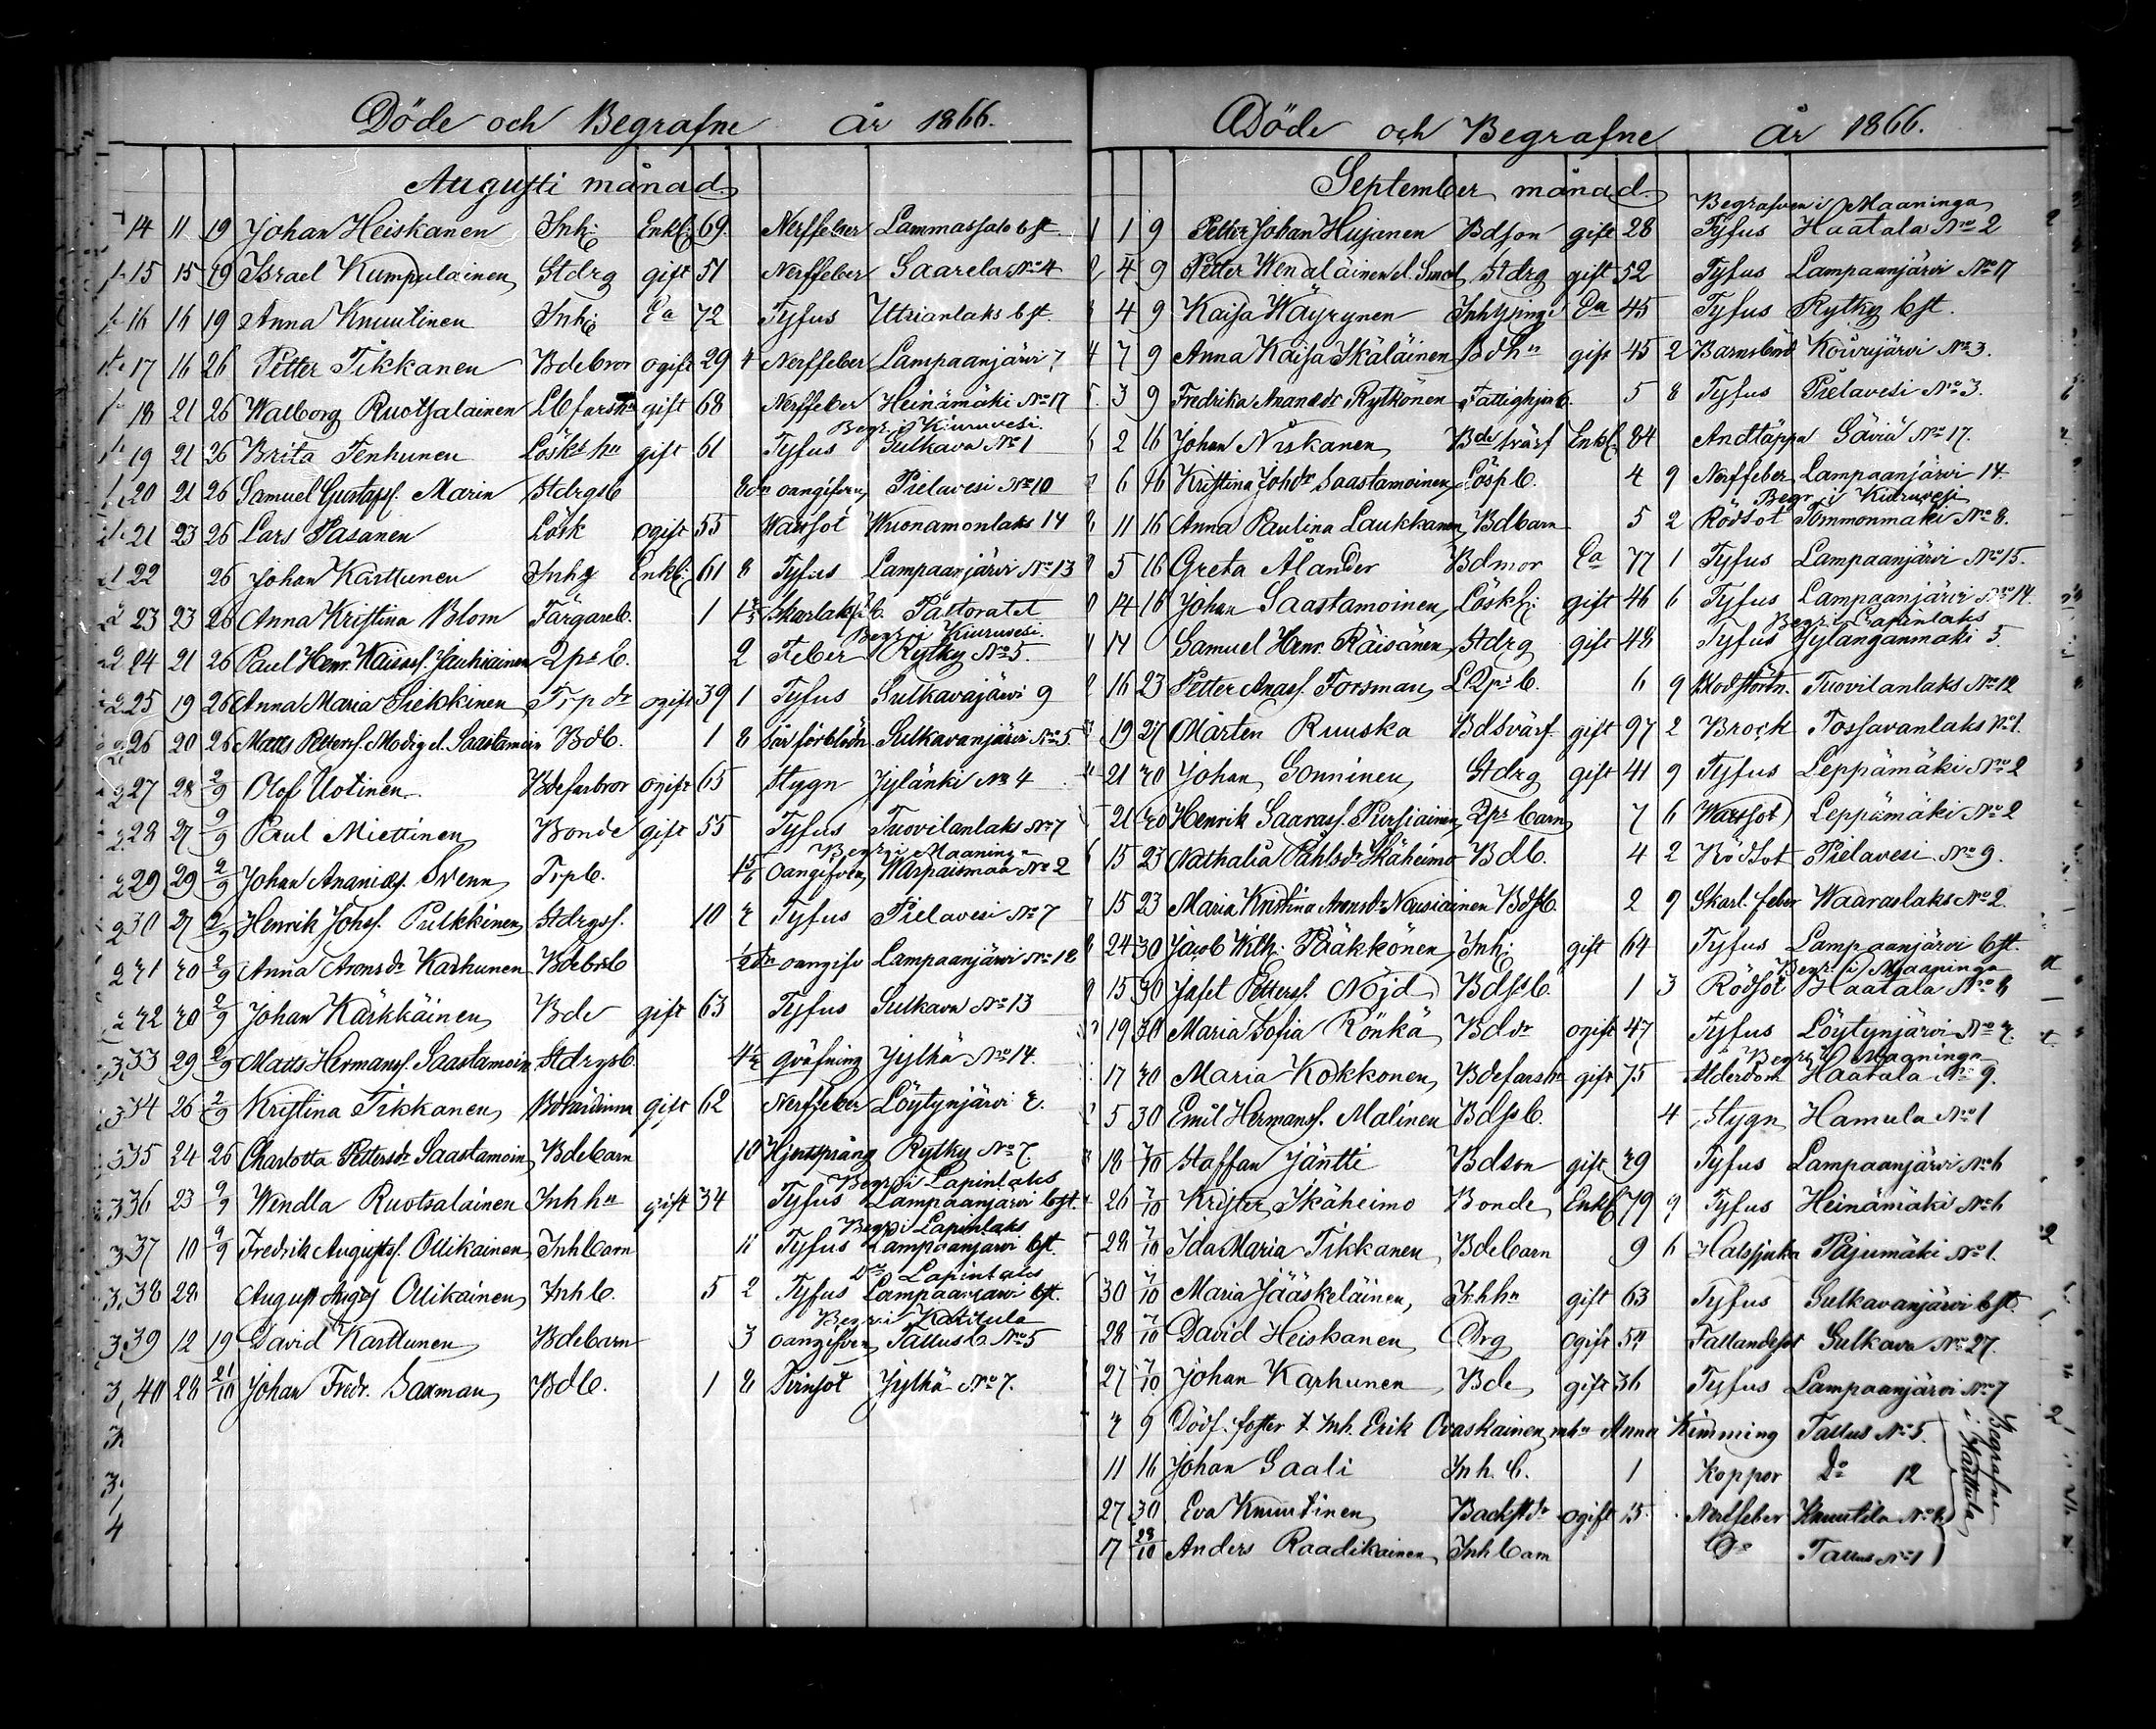 Döde och Begrafne år 1866.
Augusti månad
14 11 19 Johan Heiskanen Inh: Enkl: 69 Nerffeber Lammassalo bst.
15 15 19 Israel Kumpulainen Stdrg gift 51 Nerffeber Saarela No 4
16 16 19 Anna Knuutinen Inh: Ea 72 Tyfus Utrianlaks bst.
17 16 26 Petter Tikkanen Bdebror ogift 29 4 Nerffeber Lampaanjärvi 7
18 21 26 Walborg Ruotsalainen gift 68 Nerffeber Heinämäki No 17
Begr. i Kiuruvesi.
19 21 26 Brita Tenhunen Lösks hu gift 61 Tyfus Sulkava No 1
20 21 26 Samuel Gustafsf. Marin Stdrgsb 8 dn oangifven Pielavesi No 10
21 23 26 Lars Pasanen Lösk ogift 55 Wattsot Wuonamonlaks 14
22 26 Johan Karttunen Inhg Enkl: 61 8 Tyfus Lampaanjärvi No 13
23 23 26 Anna Kristina Blom Färgareb. 1 Skarlaksf. Pastoratet
Begr. i Kiuruvesi.
24 21 26 Paul Henr. Jauhiainen 2 Feber Rytky No 5.
25 19 26 Anna Maria Siekkinen Trp dr ogift 39 1 Tyfus Sulkavajärvi 9
26 20 26 Matts Petterss. Modig el. Saastamoin Bdb. 1 8 Sulkavanjärvi No 5
27 28 2/9 Olof Uotinen Bdefarbror ogift 65 Stygn Jylänki No 4
28 27 9/9 Paul Miettinen Bonde gift 55 Tyfus Tuovilanlaks No 7
Begr. i Maaninga
29 29 2/9 Johan Ananiass. Svenn Trpb. oangifven Warpaismaa No 2
30 27 2/9 Henrik Johsf. Pulkkinen Stdrgsf. 10 3 Tyfus Pielavesi No 7
31 30 2/9 Anna Aronsdr Karhunen Bdebrb 1/2 dn oangifv Lampaanjärvi No 18
32 30 2/9 Johan Kärkkäinen Bde gift 63 Tyfus Sulkava No 13
33 29 2/9 Matts Hermansf. Saastamoin Stdrgsb. qväfning Jylhä No 14.
34 26 2/9 Kristina Tikkanen gift 62 Nerffeber Löytynjärvi 3.
35 24 26 Charlotta Pettersdr Saastamoin Bdebarn 10 Hjertspräng Rytky No 7
Begr. i Lapinlaks
36 23 9/9 Wendla Ruotsalainen Inh hu gift 34 Tyfus Lampaanjärvi bst.
Begr. i Lapinlaks
37 10 9/9 Fredrik Augustsf. Ollikainen Inhbarn 11 Tyfus Lampaanjärvi bst.
Do Lapinlaks
38 28 August Augsf Ollikainen Inhb. 5 2 Tyfus Lampaanjärvi bst.
Begr. i Karttula
39 12 19 David Karttunen Bdebarn 3 oangifven Tallus No 5
40 28 21/10 Johan Fredr. Saxman Bdb. 1 8 Tvinsot Jylhä No 7.
Döde och Begrafne år 1866.
September månad
Begrafven i Maaninga
1 1 9 Petter Johan Hujanen Bdson gift 28 Tyfus Haatala No 2
4 9 Petter Wenäläinen el. Smed Stdrg gift 52 Tyfus Lampaanjärvi No 17
4 9 Kaisa Wäyrynen Inhysing Ea 45 Tyfus Rytky bst.
4 7 9 Anna Kaisa Ikäläinen Bdhu gift 45 2 Barnsbörd Koivujärvi No 3.
5 3 9 Fredrika Ananedr Rytkönen Fattighjonb. 5 8 Tyfus Pielavesi No 3.
2 16 Johan Niskanen Bde svärf Enkl. 84 Andtäppa Säviä No 17.
6 16 Kristina Johdr Saastamoinen Löspb. 4 9 Nerffeber Lampaanjärvi 14.
Begr. i Kiuruvesi
11 16 Anna Paulina Laukkanen Bdbarn 5 2 Rödsot Tommonmäki No 8.
5 16 Greta Ålander Bdmor Ea 77 1 Tyfus Lampaanjärvi No 15.
14 16 Johan Saastamoinen Löskf: gift 46 6 Tyfus Lampaanjärvi No 14.
Begr. i Lapinlaks
14 Samuel Henr. Räisänen Stdrg gift 48 Tyfus Jylänganmäki 5.
16 23 Petter Anass. Forsman 6 9 Blodstörtn. Tuovilanlaks No 12
19 27 Mårten Ruuska Bdsvärf gift 97 2 Brock Tossavanlaks No 1.
21 30 Johan Sonninen Stdrg gift 41 9 Tyfus Leppämäki No 2
21 30 Henrik Saarass. Pursiainen barn 7 6 Wattsot Leppämäki No 2
15 23 Nathalia Påhlsdr Ikäheimo Bdb. 4 2 Rödsot Pielavesi No 9.
15 23 Maria Kristina Aronsdr Nousiainen Bdsb. 2 9 Skarl. feber Waaraslaks No 2.
24 30 Jacob Wilh: Pääkkönen Inh: gift 64 Tyfus Lampaanjärvi bst.
Begr. i Maaninga
15 30 Jafet Petterss. Nöjd Bdssb. 1 3 Rödsot Haatala No 8
19 30 Maria Sofia Rönkä Bddr ogift 47 Tyfus Löytynjärvi No 3.
Begr. i Maaninga
17 30 Maria Kokkonen gift 75 Ålderdom Haatala No 9.
5 30 Emil Hermansf. Malinen Bdssb. 4 Stygn Hamula No 1
18 7/10 Staffan Jäntti Bdson gift 39 Tyfus Lampaanjärvi No 6
26 7/10 Krister Ikäheimo Bonde Enkl 79 9 Tyfus Heinämäki No 6
28 7/10 Ida Maria Tikkanen Bdebarn 9 6 Halssjuka Pajumäki No 1.
30 7/10 Maria Jääskeläinen Inhhu gift 63 Tyfus Sulkavanjärvi bst.
28 7/10 David Heiskanen Drg ogift 54 Fallandesot Sulkava No 27.
27 7/10 Johan Karhunen Bde gift 36 Tyfus Lampaanjärvi No 7
3 9 Dödf. foster t Inh. Erik Ovaskainen mhu Anna Kimming Tallus No 5.
11 16 Johan Saali Inh. b. 1 Koppor Do 12
27 30 Eva Knuutinen Backstdr ogift 15 Nerffeber Knuutila No
17 28/10 Anders Raadikainen Inhbarn Do Tallus No 1
Begrafne i Karttula